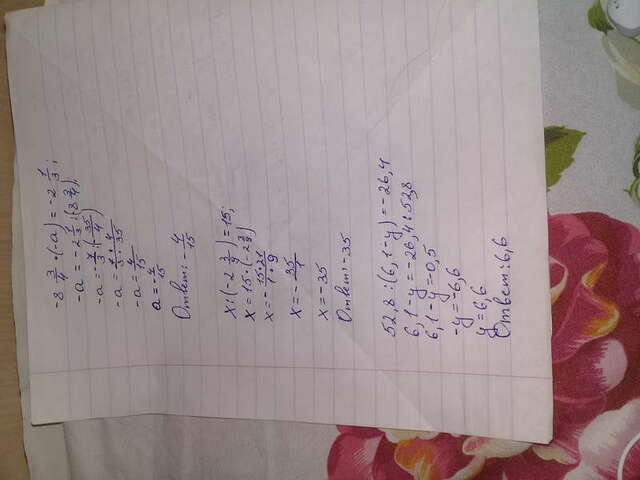 -8 3/4 · (-a) = -2 1/3;
-a = -2 1/3 : (-8 3/4);
-a = -7/3 : (-35/4)
-a = 7 · 4/3 · 35
-a = 4/15
a = -4/15
Ответ: -4/15
x : (-2 3/9) = 15;
x = 15 · (-2 3/9)
x = -15·21/1·9
x = -35/1
x = -35
Ответ: -35
52,8 : (6,1-y) = -26,4
6,1-y = -26,4 : 52,8
6,1-y = -0,5
-y = -6,6
y = 6,6
Ответ: 6,6